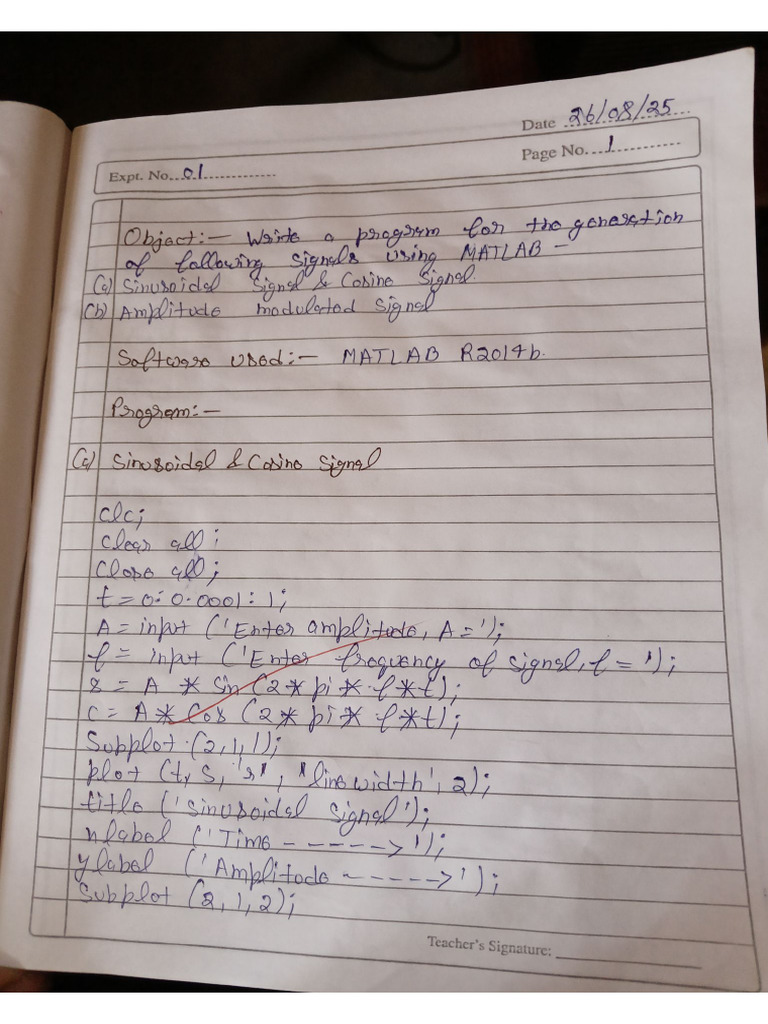 Date 26/08/25
Page No. 1
Expt. No. 01
Object:- Write a program for the generation
of following signals using MATLAB -
(a) Sinusoidal Signal & Cosine Signal.
(b) Amplitude modulated Signal
Software used:- MATLAB R2014b.
Program:-
(a) Sinusoidal & Cosine Signal
clc;
clear all;
close all;
t = 0:0.0001:1;
A = input ('Enter amplitude, A=');
f = input ('Enter frequency of signal, f = ');
s = A * sin (2* pi* f*t);
c = A* Cos (2* pi* f*t);
Subplot (2,1,1);
plot (t, s, 'r', 'linewidth', 2);
title ('Sinusoidal Signal');
xlabel ('Time ------>');
ylabel ('Amplitude ----->');
Subplot (2,1,2);
Teacher's Signature: